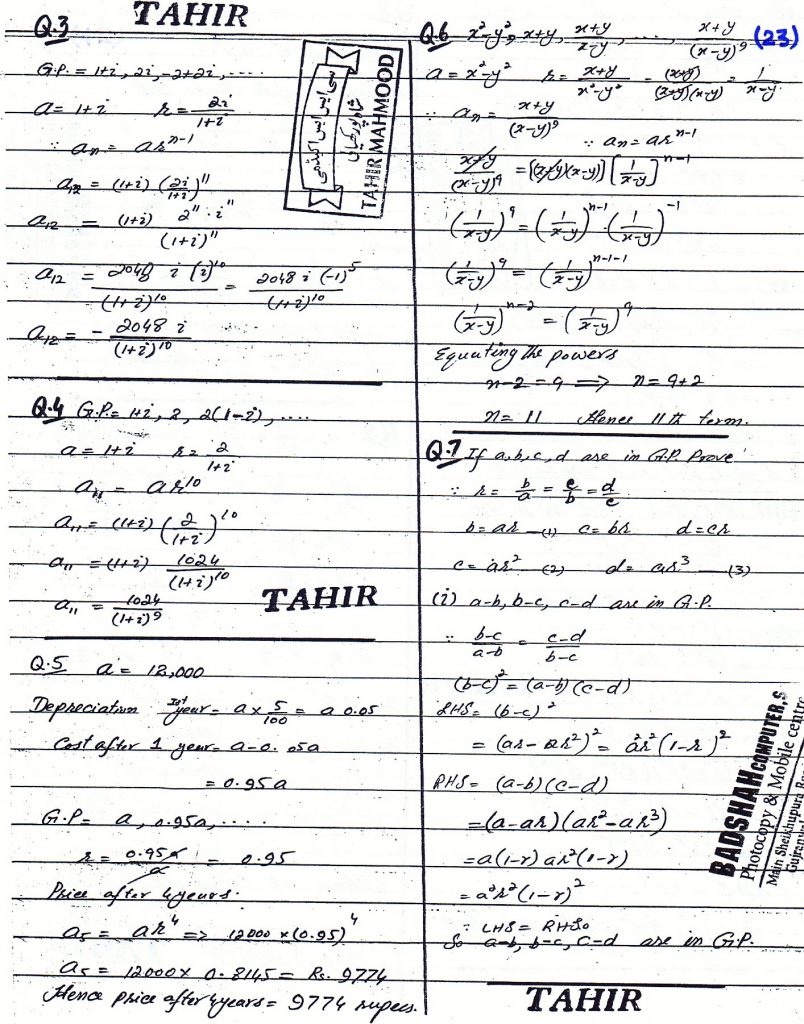 TAHIR
Q.3
G.P. = 1+i, 2i, -2+2i, ....
a = 1+i r = 2i/(1+i)
∵ aₙ = arⁿ⁻¹
a₁₂ = (1+i) (2i/(1+i))¹¹
a₁₂ = (1+i) 2¹¹·i¹¹/(1+i)¹¹
a₁₂ = 2048 i (i)¹⁰/(1+i)¹⁰ = 2048 i (-1)⁵/(1+i)¹⁰
a₁₂ = - 2048 i/(1+i)¹⁰
سی ایس ایس اکیڈمی
TAHIR MAHMOOD
Q.4 G.P. = 1+i, 2, 2(1-i), ....
a = 1+i r = 2/(1+i)
a₁₁ = ar¹⁰
a₁₁ = (1+i) (2/(1+i))¹⁰
a₁₁ = (1+i) 1024/(1+i)¹⁰
a₁₁ = 1024/(1+i)⁹
TAHIR
Q.5 a = 12,000
Depreciation Ist year = a × 5/100 = a 0.05
Cost after 1 year = a-0.05a
= 0.95a
G.P = a, 0.95a, ....
r = 0.95a/a = 0.95
Price after 4 years.
a₅ = ar⁴ => 12000 × (0.95)⁴
a₅ = 12000 × 0.8145 = Rs. 9774
Hence price after 4 years = 9774 rupees.
Q.6 x²-y², x+y, (x+y)/(x-y), ...., (x+y)/(x-y)⁹ (23)
a = x²-y² r = (x+y)/(x²-y²) = (x+y)/((x+y)(x-y)) = 1/(x-y)
∵ aₙ = (x+y)/(x-y)⁹
∵ aₙ = arⁿ⁻¹
(x+y)/(x-y)⁹ = [(x+y)(x-y)] [1/(x-y)]ⁿ⁻¹
(1/(x-y))⁹ = (1/(x-y))ⁿ⁻¹·(1/(x-y))⁻¹
(1/(x-y))⁹ = (1/(x-y))ⁿ⁻¹⁻¹
(1/(x-y))ⁿ⁻² = (1/(x-y))⁹
Equating the powers
n-2 = 9 => n = 9+2
n = 11 Hence 11th term.
Q.7 If a, b, c, d are in G.P. Prove
∵ r = b/a = c/b = d/c
b = ar —(1) c = br d = cr
c = ar² —(2) d = ar³ —(3)
(i) a-b, b-c, c-d are in G.P.
∵ (b-c)/(a-b) = (c-d)/(b-c)
(b-c)² = (a-b)(c-d)
LHS = (b-c)²
= (ar - ar²)² = a²r²(1-r)²
RHS = (a-b)(c-d)
= (a-ar)(ar²-ar³)
= a(1-r) ar²(1-r)
= a²r²(1-r)²
∵ LHS = RHS
So a-b, b-c, c-d are in G.P.
TAHIR
BADSHAH COMPUTER,S
Photocopy & Mobile centre
Main Sheikhupura